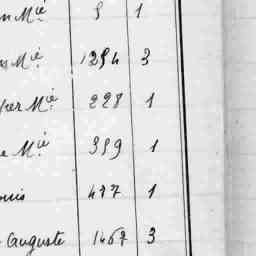 n Mie 9 1
s Mie 1294 3
per Mie 228 1
e Mie 359 1
ouis 477 1
Auguste 1467 3